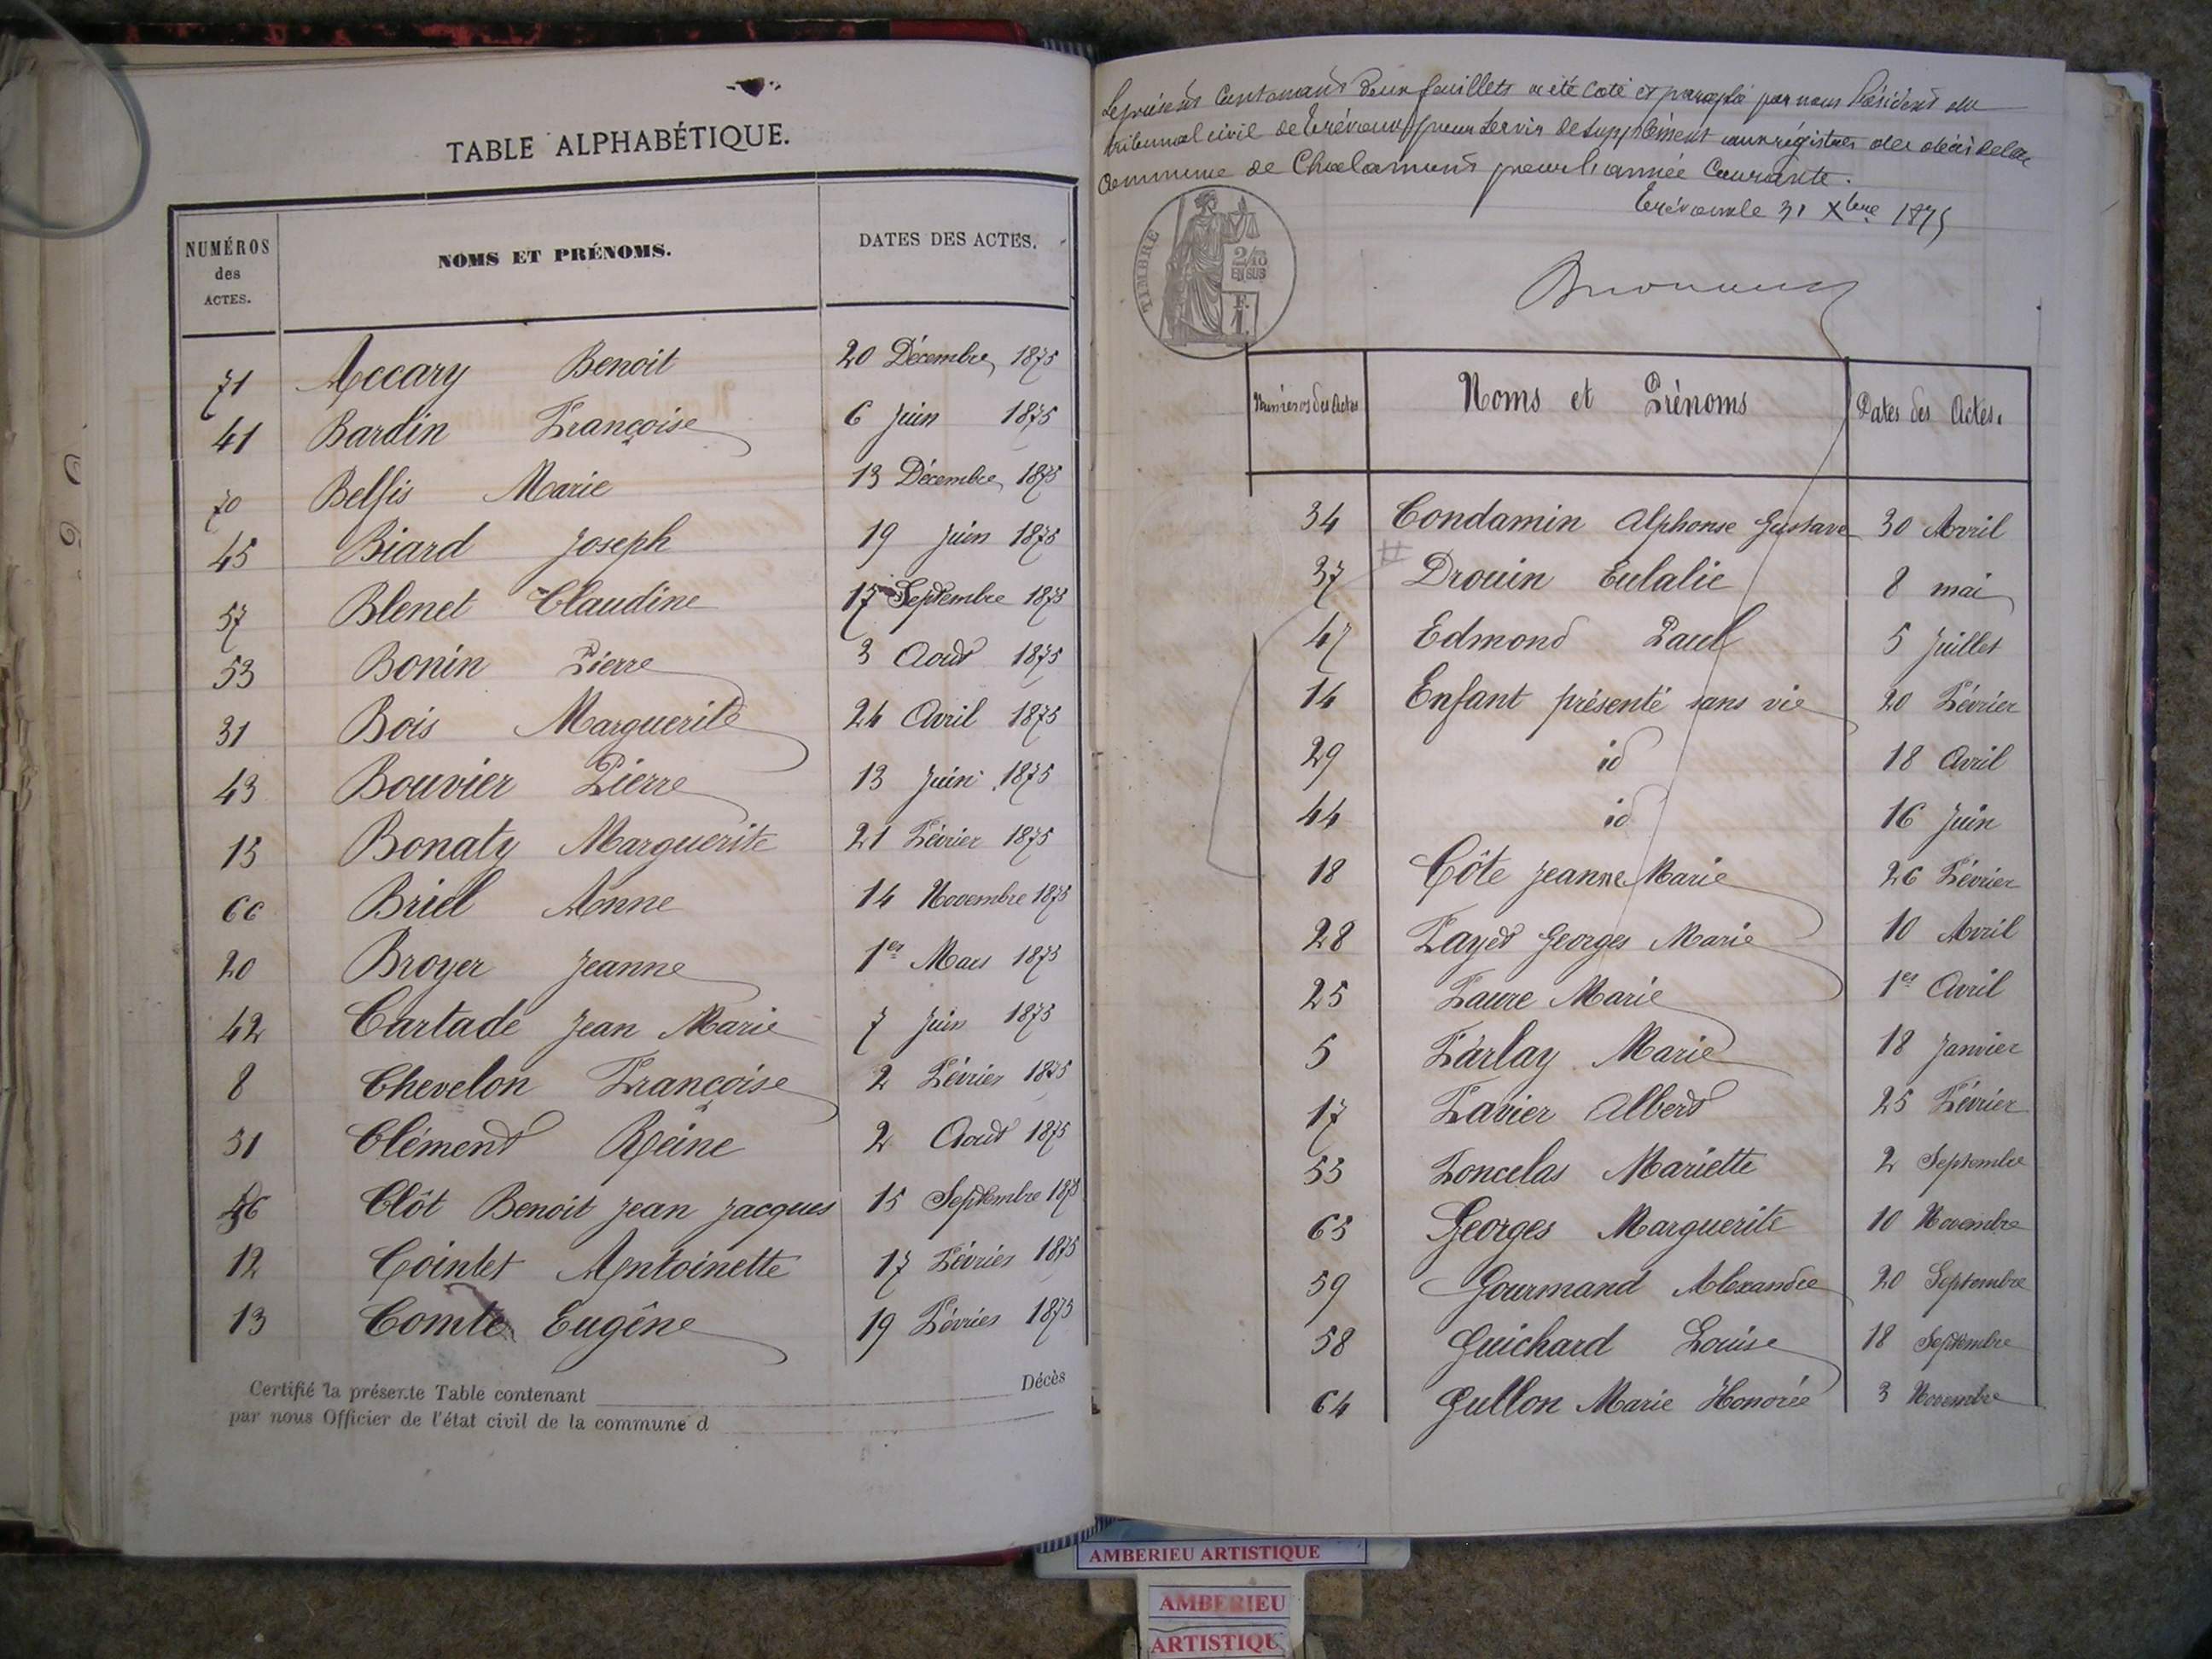 TABLE ALPHABÉTIQUE.
NUMÉROS
des
ACTES.
NOMS ET PRÉNOMS.
DATES DES ACTES.
71 Accary Benoit 20 Décembre 1875
41 Bardin Françoise 6 Juin 1875
70 Belfis Marie 13 Décembre 1875
45 Biard Joseph 19 Juin 1875
57 Blenet Claudine 17 Septembre 1875
53 Bonin Pierre 3 Aout 1875
31 Bois Marguerite 24 Avril 1875
43 Bouvier Pierre 13 Juin 1875
15 Bonaty Marguerite 21 Février 1875
66 Briel Anne 14 Novembre 1875
20 Broyer Jeanne 1er Mars 1875
42 Cartade Jean Marie 7 Juin 1875
8 Chevelon Françoise 2 Février 1875
51 Clément Reine 2 Aout 1875
56 Clôt Benoit Jean Jacques 15 Septembre 1875
12 Cointet Antoinette 17 Février 1875
13 Comte Eugêne 19 Février 1875
Certifié la présente Table contenant Décès
par nous Officier de l'état civil de la commune d
Le présent Contenant deux feuillets a été coté et paraphé par nous Président du
tribunal civil de Trévoux pour servir de supplément aux régistres des décès de la
Commune de Chalamont pour l'année Courante.
Trévoux le 31 Xbre 1875
TIMBRE
2/10
EN SUS
F.
1
Numéros des Actes
Noms et Prénoms
Dates des Actes.
34 Condamin Alphonse Gustave 30 Avril
37 Drouin Eulalie 8 mai
47 Edmond Paul 5 Juillet
14 Enfant présenté sans vie 20 Février
29 id 18 Avril
44 id 16 Juin
18 Côte Jeanne Marie 26 Février
28 Fayet Georges Marie 10 Avril
25 Faure Marie 1er Avril
5 Farlay Marie 18 Janvier
17 Favier Albert 25 Février
55 Foncelas Mariette 2 Septembre
65 Georges Marguerite 10 Novembre
59 Gourmand Alexandre 20 Septembre
58 Guichard Louise 18 Septembre
64 Gullon Marie Honorée 3 Novembre
AMBERIEU ARTISTIQUE
AMBERIEU
ARTISTIQU